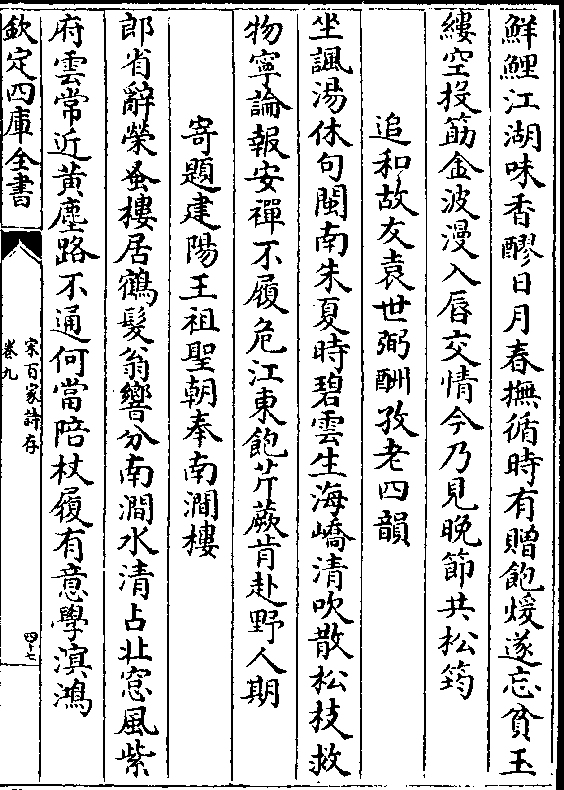 鮮鯉江湖味香醪日月春撫循時有贈飽煖遂忘貧玉
縷空投筯金波漫入唇交情今乃見晚節共松筠
追和故友袁世弼酬孜老四韻
坐諷湯休句閩南朱夏時碧雲生海嶠清吹散松枝救
物寧論報安禪不履危江東飽芹蕨肯赴野人期
寄題建陽王祖聖朝奉南澗樓
郎省辭榮蚤樓居鶴髮翁響分南澗水清占北窓風紫
府雲常近黃塵路不通何當陪杖屨有意學溟鴻
欽定四庫全書
宋百家詩存
卷九
四十七